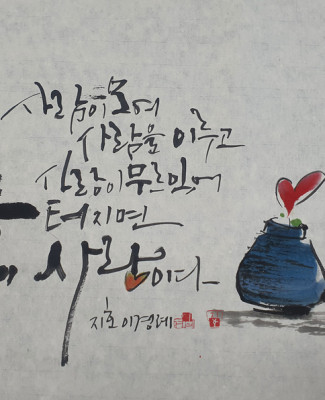 사람이 모여
사랑을 이루고
사랑이 무르익어
터지면
사랑이다
지호 이경례